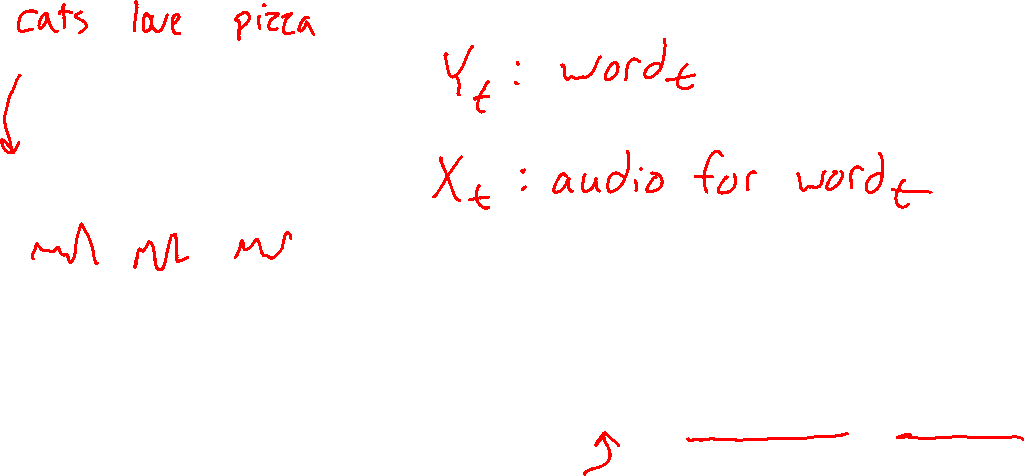 cats love pizza
Y_t : word_t
X_t : audio for word_t